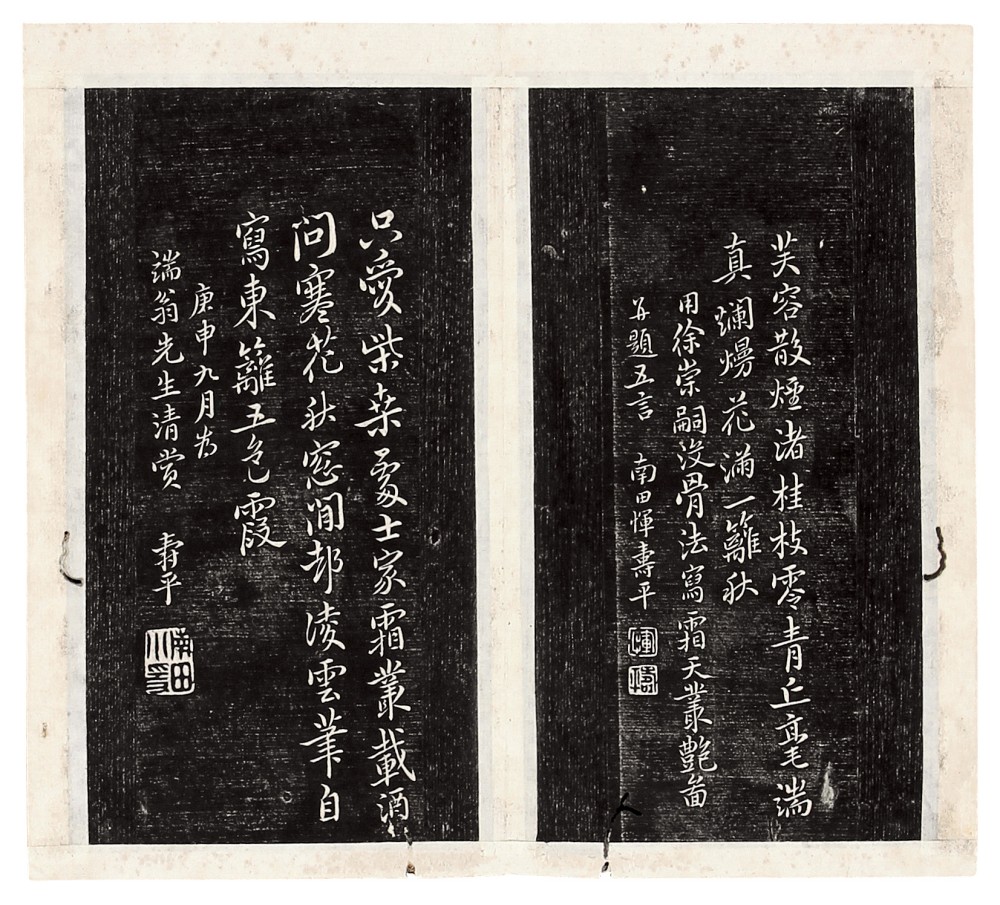 芙容散煙渚桂枝零青丘毫端
真斕熳花滿一籬秋
用徐崇嗣沒骨法寫霜天叢艷圖
并題五言 南田惲壽平
只愛柴桑處士家霜叢載酒
問寒花秋窓閒却凌雲筆自
寫東籬五色霞
庚申九月為
端翁先生清賞 壽平
南田小印